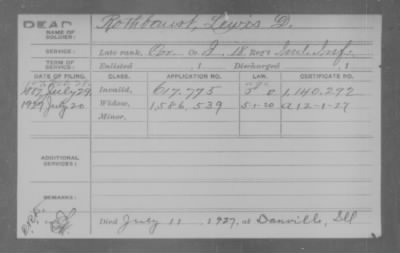 DEAD
NAME OF SOLDIER: Rothbaust, Lewis D.
SERVICE: Late rank, Co. I, 18, Reg't Inf.
TERM OF SERVICE: Enlisted , 1 Discharged , 1
DATE OF FILING. CLASS. APPLICATION NO. LAW. CERTIFICATE NO.
July 29 Invalid, 617,775 1,140,292
1927 July 20 Widow, 1,586,539 5-1-20 a 12-1-27
Minor,
ADDITIONAL SERVICES:
REMARKS:
Died July 11, 1927, at Danville, Ill